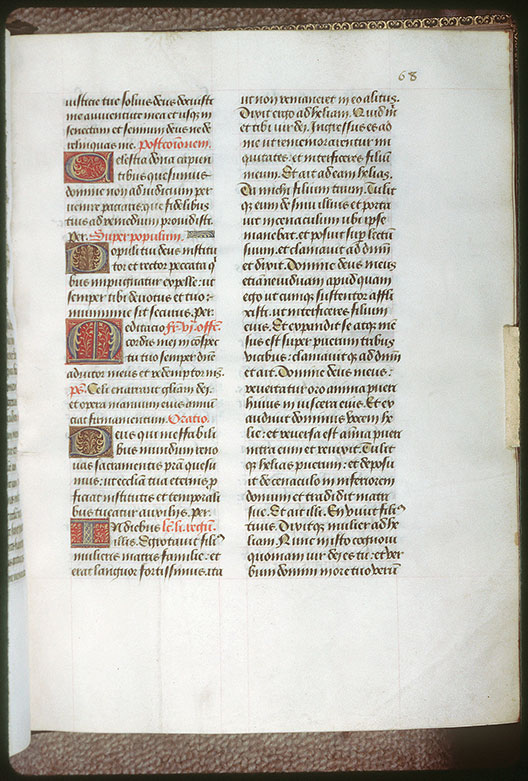 68
iusticie tue solius deus docuisti
me a iuventute mea et usq̃ in
senectam et senium deus ne de
relinquas me. Postcõionem.
Celestia dõna capien
tibus quesumus
domine non ad iudicium per
venire patiaris: que fidelibus
tuis ad remedium providisti.
Per. Super populum.
Populi tui deus institu
tor et rector peccata q̃
bus impugnatur expelle: ut
semper tibi devotus et tuo
munimine sit securus. per.
Meditatio
cordis mei in cõspec
tu tuo semper dñe
adiutor meus et redemptor ms̃.
ps. Celi enarrant gliam dei:
et opera manuum eius annũ
ciat firmamentum. Oratio
Deus qui ineffabili
bus mundum reno
vas sacramentis prã quesu
mus: ut ecclĩa tua eternis p
ficiat institutis et temporali
bus tueatur auxiliis. per.
In diebus li. regũ.
illis. Egrotavit fili9
mulieris matris familie: et
erat languor fortissimus. ita
ut non remaneret in eo alitus.
Dixit ergo ad heliam. Quid m̃
et tibi vir dei. Ingressus es ad
me ut rememorarentur ini
quitates: et interficeres filiũ
meum. Et ait ad eam helias.
Da michi filium tuum. Tulit
q̃ eum de sinu illius et porta
vit in cenaculum ubi ipse
manebat. et posuit sup̃ lectũ
suum. et clamavit ad dñm
et dixit. Domine deus meus
etiam ne viduam apud quam
ego utcumq̃ sustentor affli
xisti. ut interficeres filium
eius. Et expandit se atq̃ mẽ
sus est super puerum tribus
vicibus: clamavitq̃ ad dñm
et ait. Domine deus meus:
revertatur oro anima pueri
huius in viscera eius. Et ex
audivit dominus vocem he
lie: et reversa est aĩma pueri
intra eum et revixit. Tulit
q̃ helias puerum: et deposu
it de cenaculo in inferiorem
domum et tradidit matri
sue. Et ait illi. En vivit fili9
tuus. Dixitq̃ mulier ad he
liam. Nunc in isto cognovi
quoniam vir dei es tu: et ver
bum domini in ore tuo verũ